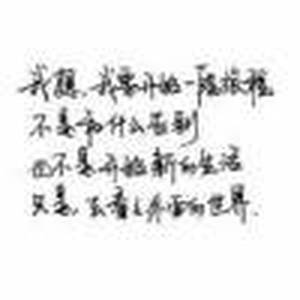 我想,我要开始一段旅程
不是和什么告别
也不是开始新的生活
只是,去看看外面的世界.